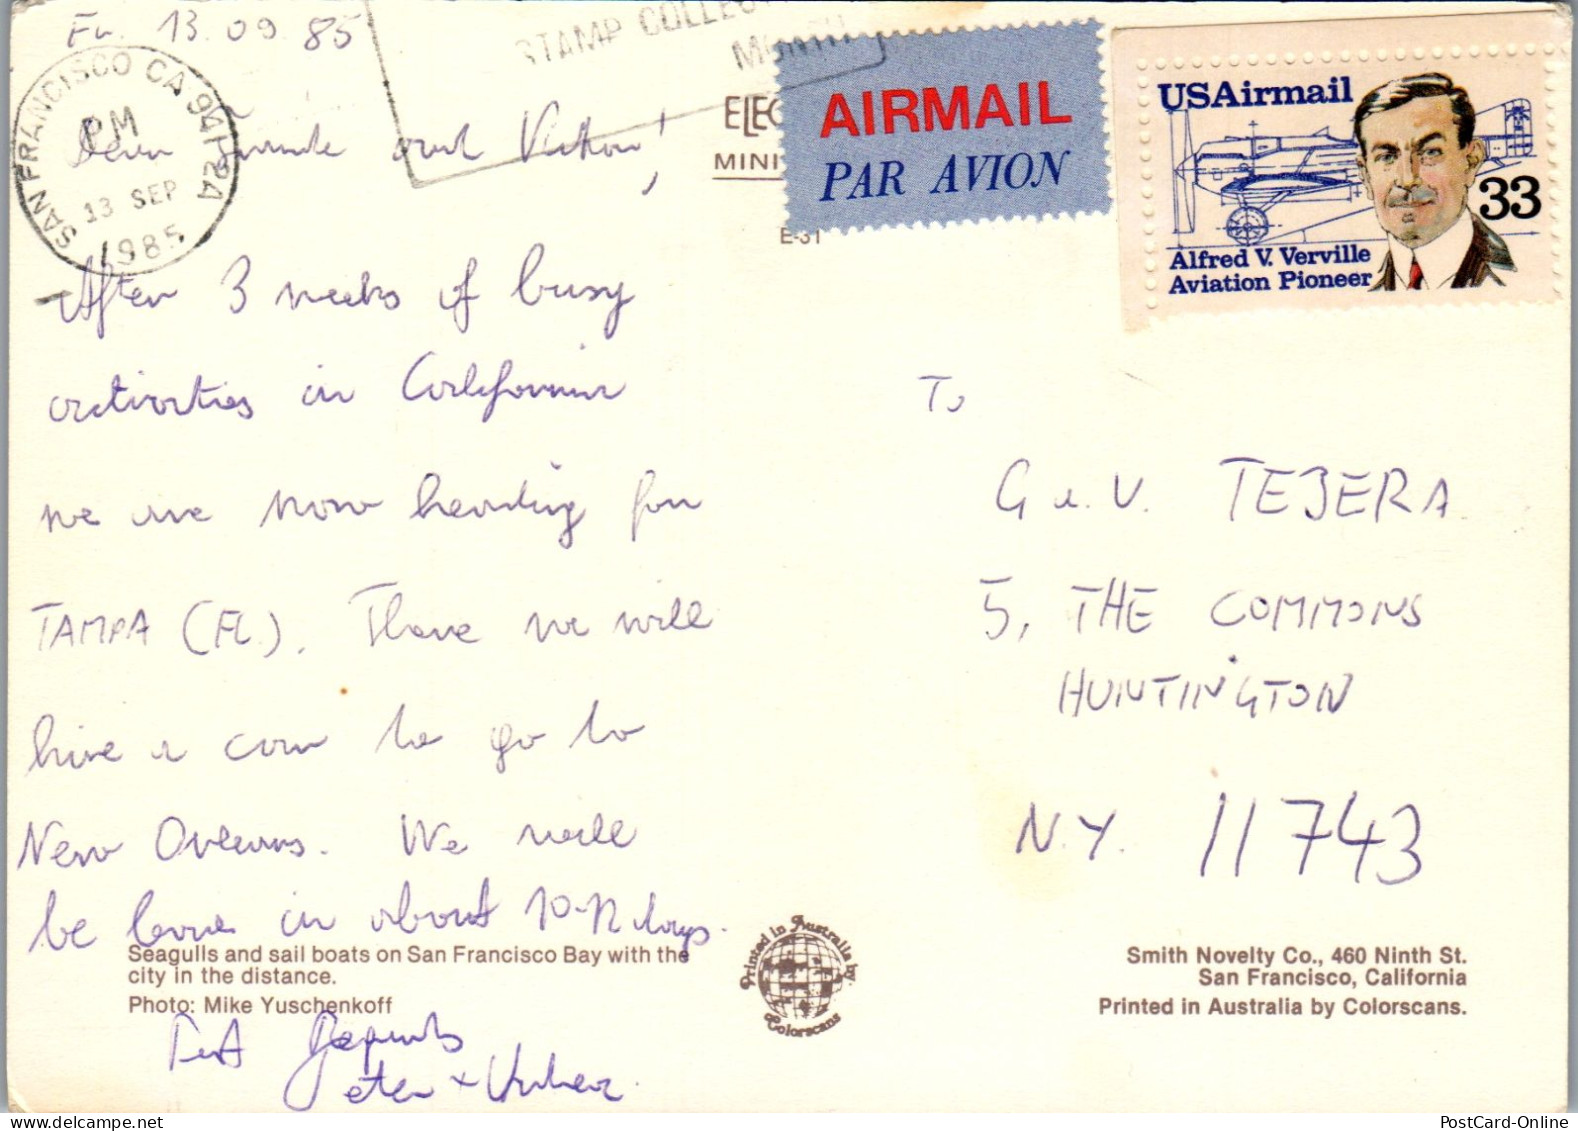 Fr. 13.09.85
STAMP COLLEC
MONTH
SAN FRANCISCO CA 941
PM
13 SEP
1985
ELEC
MINI
E-31
AIRMAIL
PAR AVION
USAirmail
33
Alfred V. Verville
Aviation Pioneer
Dear and
After 3 weeks of busy
activities in California
we are now heading for
TAMPA (FL). There we will
hire a car to go to
New Orleans. We will
be in about 10-12 days.
To
G. u. V. TEJERA
5, THE COMMONS
HUNTINGTON
N.Y. 11743
Seagulls and sail boats on San Francisco Bay with the
city in the distance.
Photo: Mike Yuschenkoff
Printed in Australia by
Colorscans
Smith Novelty Co., 460 Ninth St.
San Francisco, California
Printed in Australia by Colorscans.
PostCard-Online.com